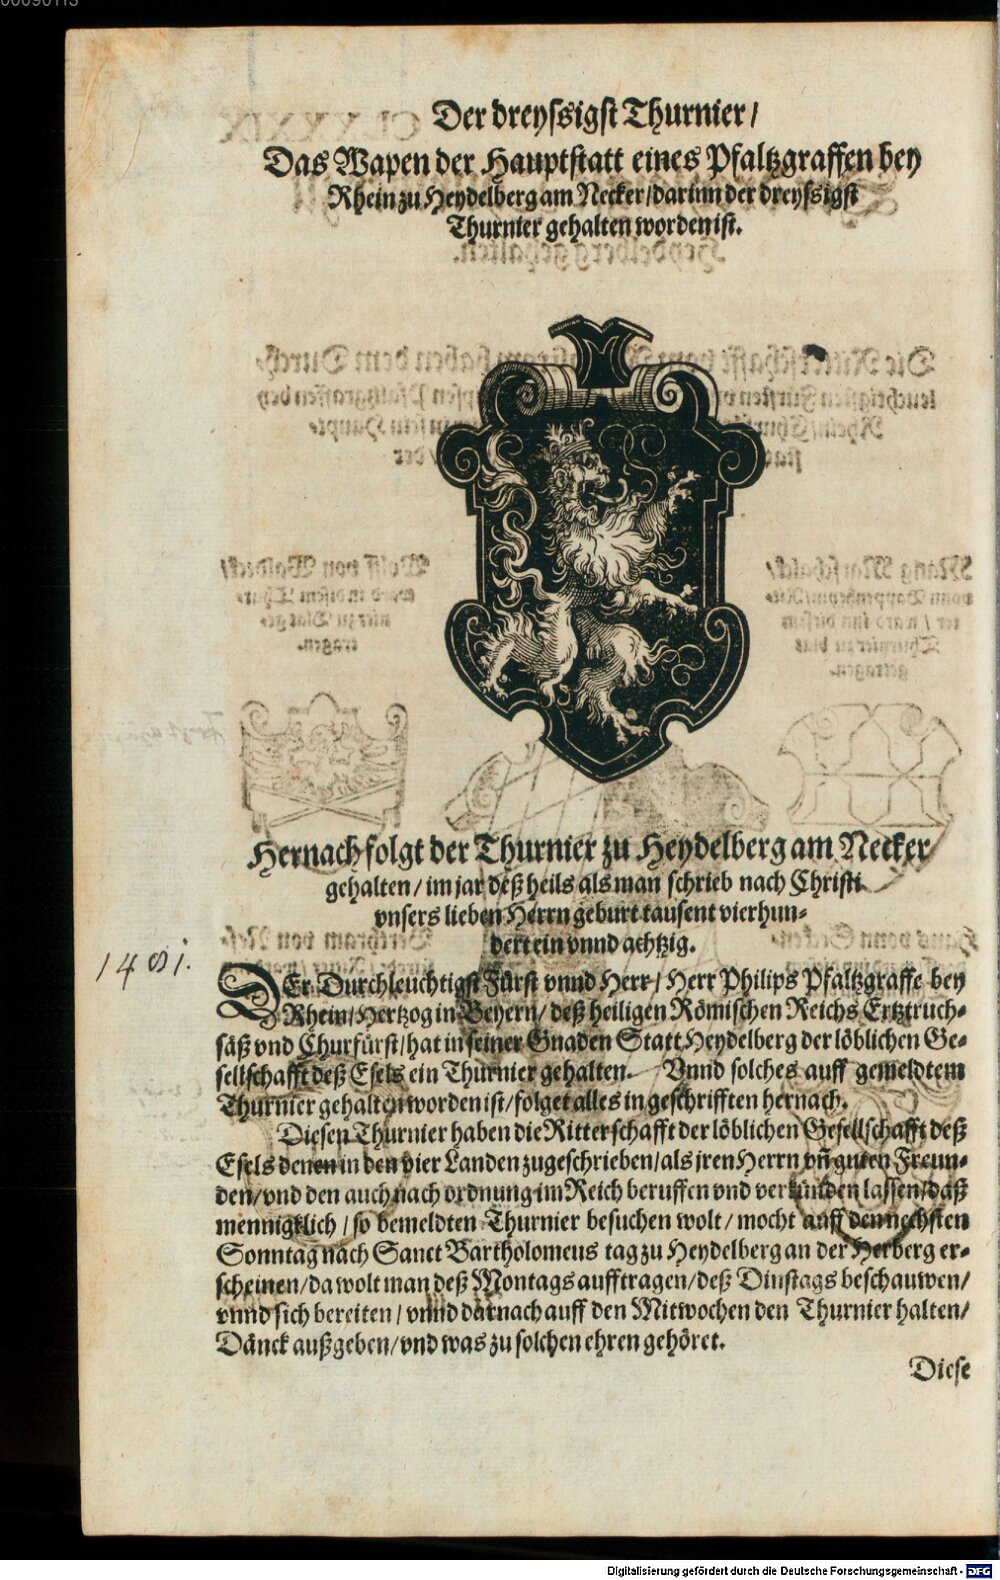 Der dreyssigst Thurnier/
Das Wapen der Hauptstatt eines Pfaltzgraffen bey
Rhein zu Heydelberg am Necker/darinn der dreyssigst
Thurnier gehalten worden ist.
Hernach folgt der Thurnier zu Heydelberg am Necker
gehalten/im jar deß heils als man schrieb nach Christi
vnsers lieben Herrn geburt tausent vierhun-
dert ein vnnd achtzig.
1481.
DEr Durchleuchtigst Fürst vnnd Herr/Herr Philips Pfaltzgraffe bey
Rhein/Hertzog in Beyern/deß heiligen Römischen Reichs Ertztruch-
säß vnd Churfürst/hat in seiner Gnaden Statt Heydelberg der löblichen Ge-
sellschafft deß Esels ein Thurnier gehalten. Vnnd solches auff gemeldtem
Thurnier gehalten worden ist/folget alles in geschrifften hernach.
Diesen Thurnier haben die Ritterschafft der löblichen Gesellschafft deß
Esels denen in den vier Landen zugeschrieben/als jren Herrn vñ guten Freun-
den/vnd den auch nach ordnung im Reich beruffen vnd verkünden lassen/daß
mennigklich/so bemeldten Thurnier besuchen wolt/mocht auff den nechsten
Sonntag nach Sanct Bartholomeus tag zu Heydelberg an der Herberg er-
scheinen/da wolt man deß Montags aufftragen/deß Dinstags beschauwen/
vnnd sich bereiten/vnnd darnach auff den Mitwochen den Thurnier halten/
Dänck außgeben/vnd was zu solchen ehren gehöret.
Diese
Digitalisierung gefördert durch die Deutsche Forschungsgemeinschaft - DFG